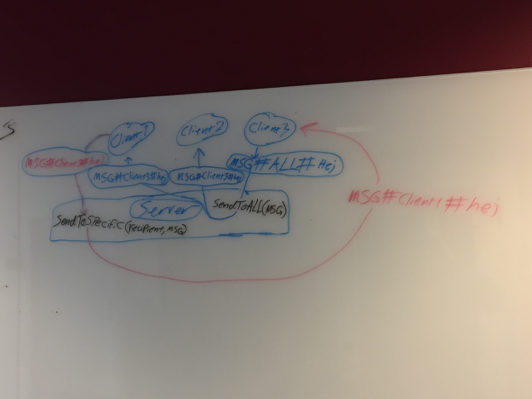 Client1
Client2
Client3
MSG#Client1#hej
MSG#ALL##Hej
Server
SendToALL(MSG)
SendToSpecific(Recipient,MSG)
MSG#Client1##hej